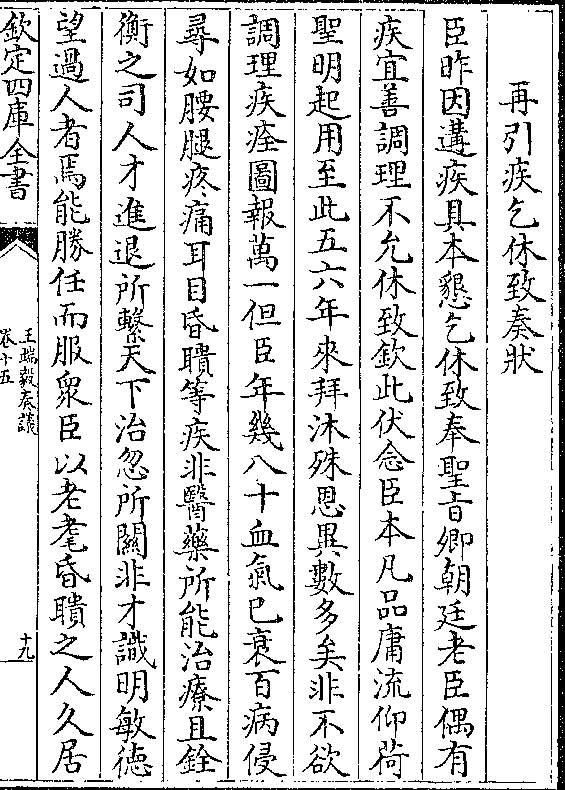 再引疾乞休致奏狀
臣昨因遘疾具本懇乞休致奉聖旨卿朝廷老臣偶有
疾宜善調理不允休致欽此伏念臣本凡品庸流仰荷
聖明起用至此五六年來拜沐殊恩異數多矣非不欲
調理疾痊圖報萬一但臣年幾八十血氣已衰百病侵
尋如腰腿疼痛耳目昏聵等疾非醫藥所能治療且銓
衡之司人才進退所繫天下治忽所關非才識明敏德
望過人者焉能勝任而服衆臣以老耄昏聵之人久居
欽定四庫全書
王端毅奏議
卷十五
十九